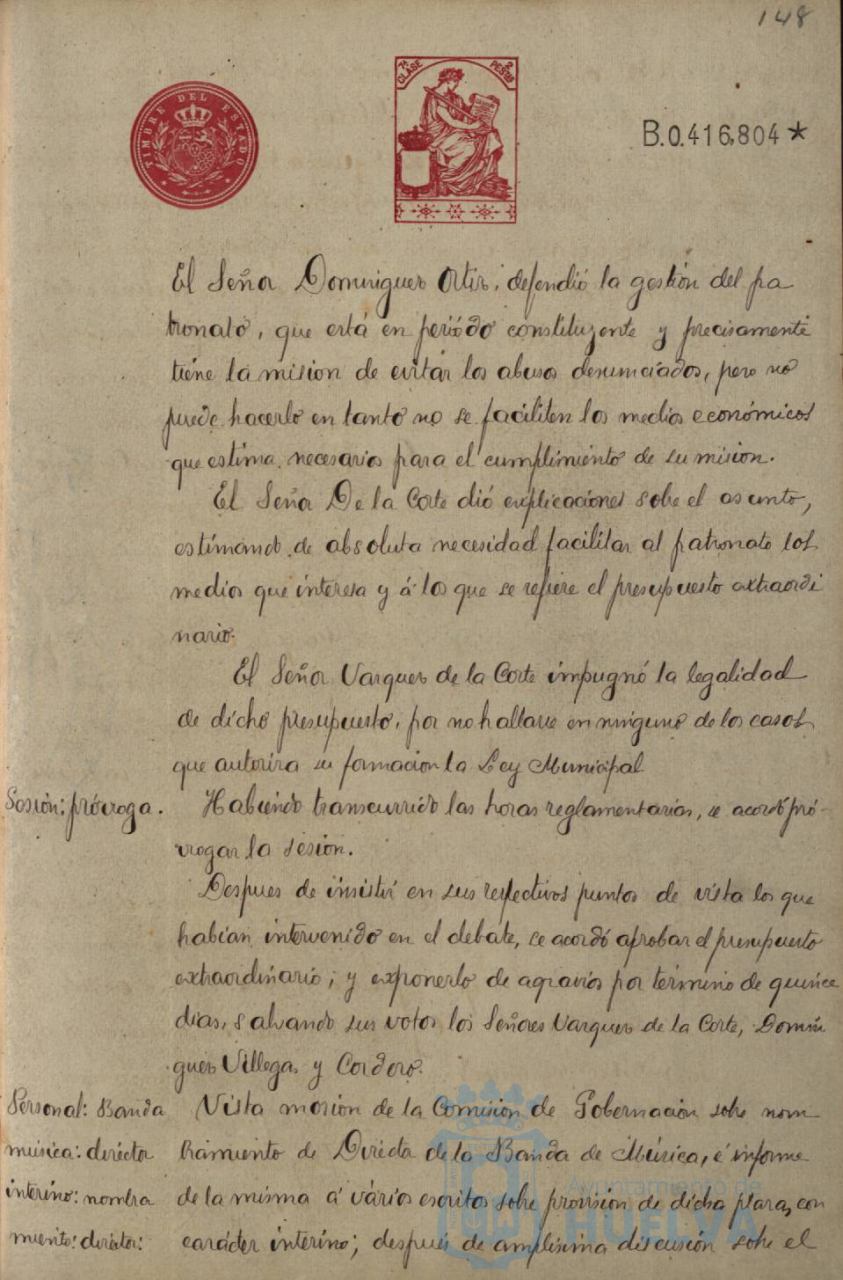 148
TIMBRE DEL ESTADO
7ª CLASE
2 PESTAS
B.0.416,804 *
El Señor Dominguez Ortiz, defendió la gestión del pa
tronato, que está en período constituyente y precisamente
tiene la mision de evitar los abusos denunciados, pero no
puede hacerlo en tanto no se faciliten los medios económicos
que estima necesarios para el cumplimiento de su mision.
El Señor De la Corte dió explicaciones sobre el asunto,
estimando de absoluta necesidad facilitar al patronato los
medios que interesa y á los que se refiere el presupuesto extraordi
nario.
El Señor Vazquez de la Corte impugnó la legalidad
de dicho presupuesto, por no hallarse en ninguno de los casos
que autoriza su formacion la Ley Municipal
Sesión: prórroga.
Habiendo transcurrido las horas reglamentarias, se acordó pró-
rrogar la sesión.
Despues de insistir en sus respectivos puntos de vista los que
habían intervenido en el debate, se acordó aprobar el presupuesto
extraordinario; y exponerlo de agravios por término de quince
dias, salvando sus votos los Señores Vazquez de la Corte, Domín
guez Villegas y Cordero.
Personal: Banda
música: director
interino: nombra
miento: director:
Vista mocion de la Comisión de Gobernación sobre nom
bramiento de Director de la Banda de Música, é informe
de la misma á vários escritos sobre provisión de dicha plaza, con
carácter interino; después de amplísima discusión sobre el
Ayuntamiento de
HUELVA